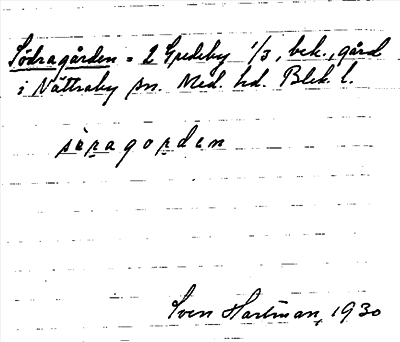 Södragården = 2 Gredeby 1/3, bek., gård
i Nättraby sn. Med. hd. Blek. l.
særagorden
Sven Hartman, 1930